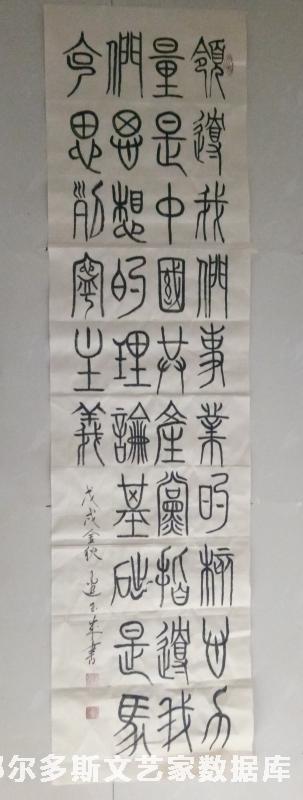 領導我們事業的核心力
量是中國共產黨指導我
們思想的理論基礎是馬
克思列寧主義
戊戌金秋書
尔多斯文艺家数据库